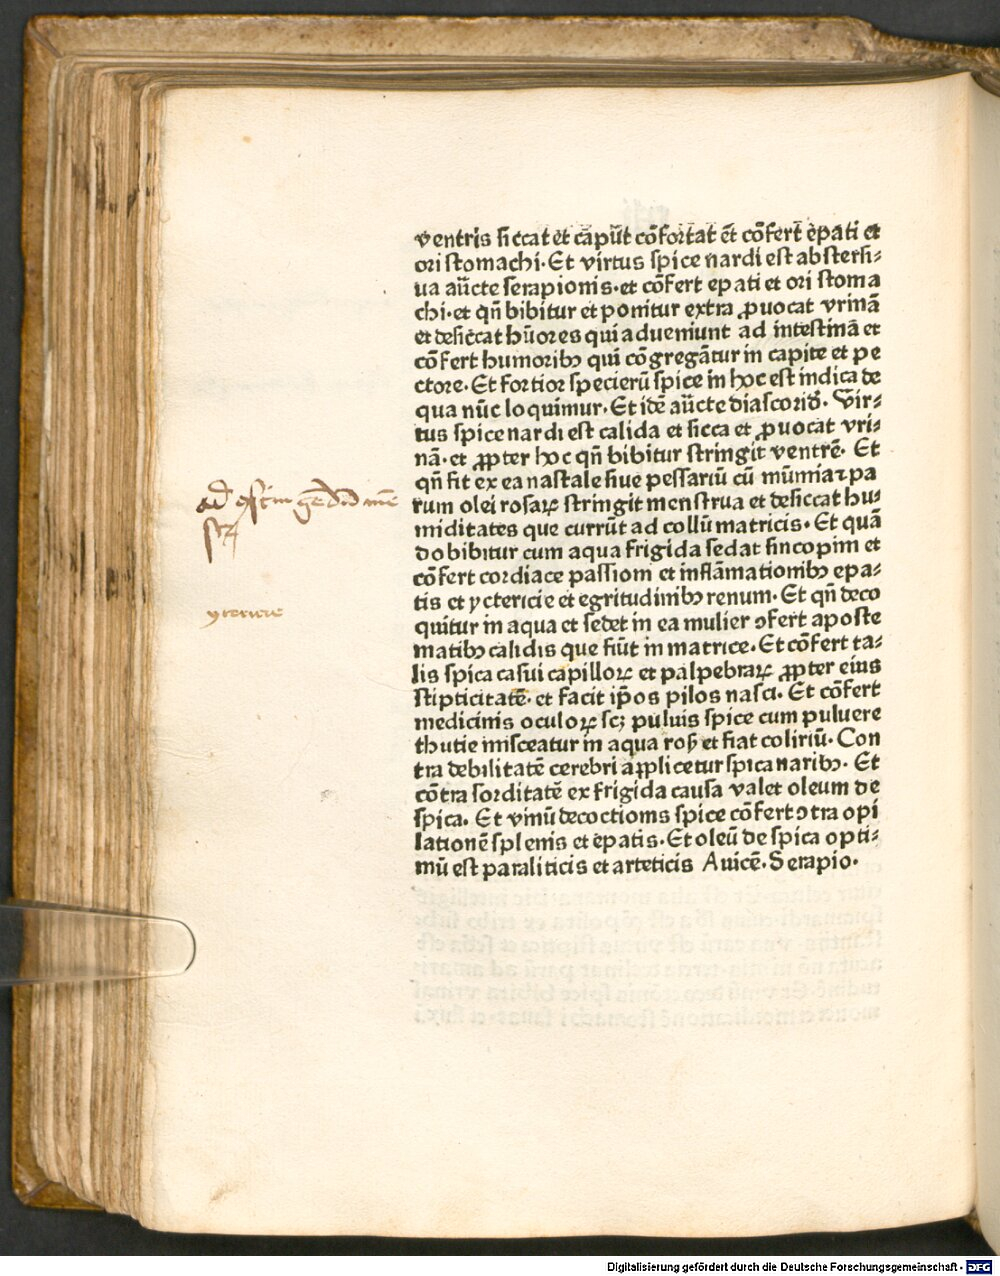 ventris siccat et capūt cōfortat et cōfert epati et
ori stomachi. Et virtus spice nardi est abstersi⸗
ua auc̄te serapionis. et cōfert epati et ori stoma
chi. et qn̄ bibitur et ponitur extra ꝓuocat vrinā
et desiccat hūores qui adueniunt ad intestina et
cōfert humoribꝫ qui cōgregātur in capite et pe
ctore. Et fortior specierū spice in hoc est indica de
qua nūc loquimur. Et idē auc̄te diascorid̄. Vir⸗
tus spice nardi est calida et sicca et ꝓuocat vri⸗
nā. et ꝓpter hoc qn̄ bibitur stringit ventrē. Et
qn̄ fit ex ea nastale siue pessariū cū mūmia ⁊ pa
rum olei rosaꝝ stringit menstrua et desiccat hu⸗
miditates que currūt ad collū matricis. Et quā
do bibitur cum aqua frigida sedat sincopim et
cōfert cordiace passioni et inflāmationibꝫ epa⸗
tis et yctericie et egritudinibꝫ renum. Et qn̄ deco
quitur in aqua et sedet in ea mulier ↄfert aposte
matibꝫ calidis que fiūt in matrice. Et cōfert ta⸗
lis spica casui capilloꝝ et palpebraꝝ ꝓpter eius
stipticitatē. et facit ip̄os pilos nasci. Et cōfert
medicinis oculoꝝ scꝫ puluis spice cum puluere
thutie misceatur in aqua roß et fiat coliriū. Con
tra debilitatē cerebri applicetur spica naribꝫ. Et
cōtra sorditatē ex frigida causa valet oleum de
spica. Et vinū decoctionis spice cōfert ↄtra opi
lationē splenis et epatis. Et oleū de spica opti⸗
mū est paraliticis et arteticis Auicē. Serapio.
ytericie
Digitalisierung gefördert durch die Deutsche Forschungsgemeinschaft - DFG